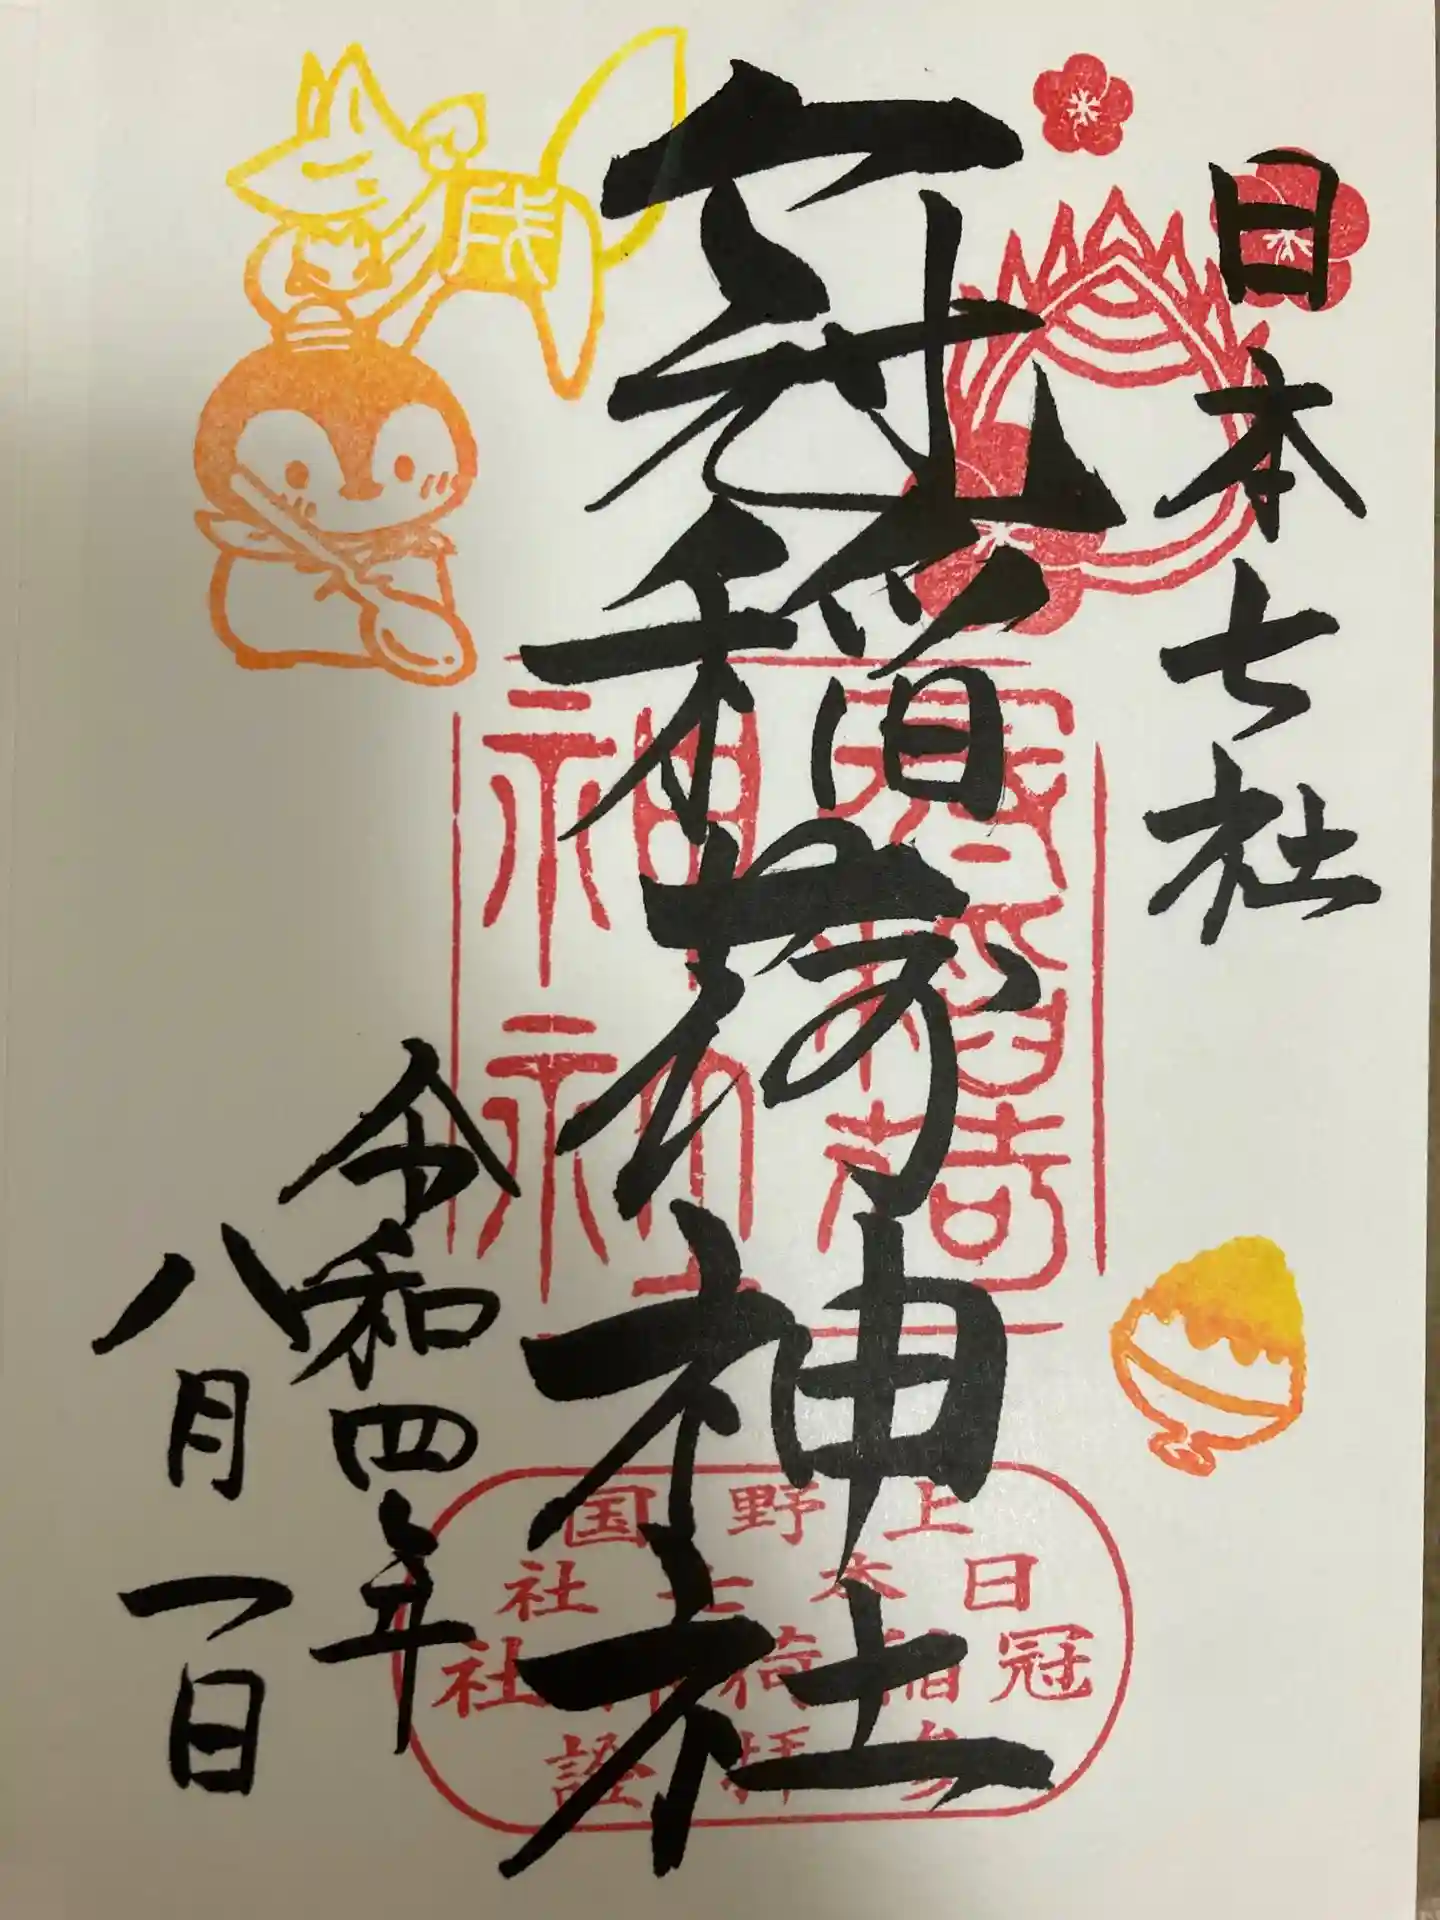 日本七社
冠稲荷神社
令和四年
八月一日
冠稲荷
神社
上野国
日本七社
冠稲荷神社
参拝證
戌